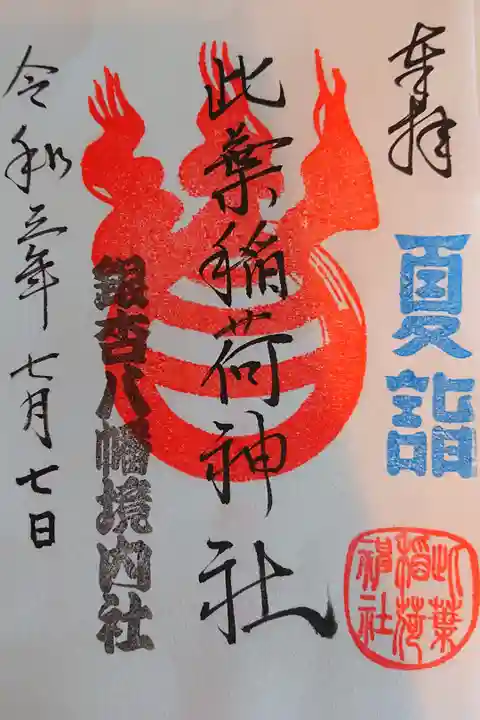 奉拝
夏詣
此葉稲荷神社
此葉
稲荷
神社
銀杏八幡境内社
令和三年七月七日